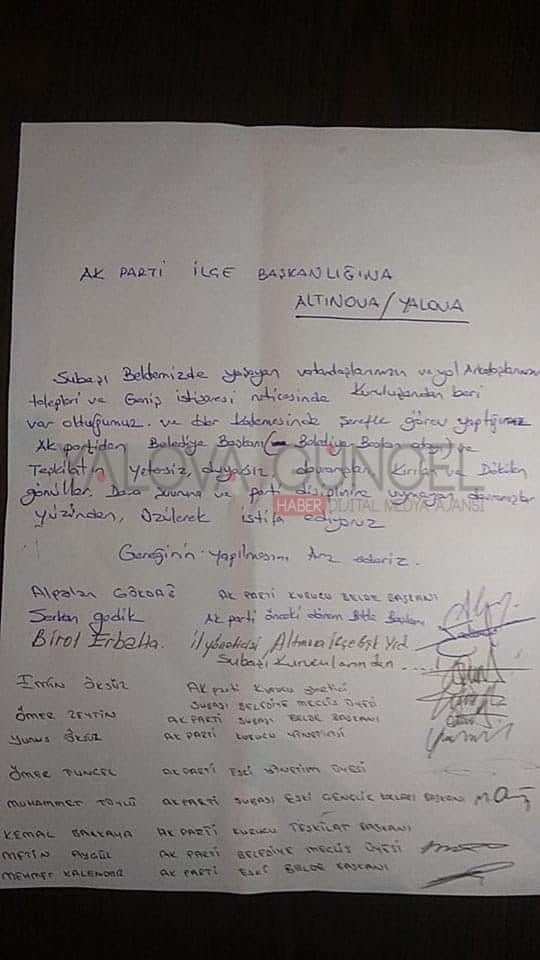 AK PARTİ İLÇE BAŞKANLIĞINA
ALTINOVA/YALOVA
Subaşı Beldemizde yaşayan vatandaşlarımızın ve yol Arkadaşlarımızın
talepleri ve Geniş istişaresi neticesinde Kuruluşundan beri
var olduğumuz. ve dava şerefle görev yaptığımız
Ak partiden Belediye Başkanı Belediye Başkan ve
Teşkilatın Yetersiz, duyarsız davranışları, Kırılan ve Dökülen
gönüller. Dava şuuruna ve parti disiplinine uymayan davranışlar
yüzünden, Üzülerek istifa ediyoruz
Gereğinin yapılmasını Arz ederiz.
YALOVA GÜNCEL
HABER DİJİTAL MEDYA AJANSI
Alpalan GÖKDAĞ AK PARTİ KURUCU BELDE BAŞKANI
Serkan gedik Ak parti önceki dönem Belde Başkanı
Birol Erbalta. il yöneticisi, Altınova ilçe Bşk Yrd.
Subaşı Kurucularından
Emin ÖKSÜZ AK parti Kurucu yönetici
SUBAŞI BELEDİYE MECLİS ÜYESİ
ÖMER ZEYTİN AK PARTİ SUBAŞI BELDE BAŞKANI
Yunus ÖKSÜZ AK PARTİ KURUCU YÖNETİCİSİ
ÖMER TUNCEL AK PARTİ ESKİ YÖNETİM ÜYESİ
MUHAMMET TOYLU AK PARTİ SUBAŞI ESKİ GENÇLİK KOLLARI BAŞKANI
KEMAL BALKAYA AK PARTİ KURUCU TEŞKİLAT BAŞKANI
METİN AYGÜL AK PARTİ BELEDİYE MECLİS ÜYESİ
MEHMET KALENDER AK PARTİ ESKİ BELDE BAŞKANI